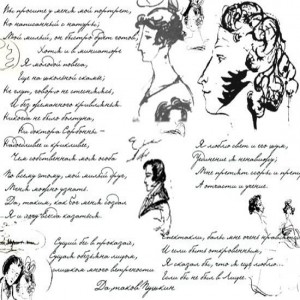 Вы просите у меня мой портрет,
Но написанный с натуры;
Мой милый, он быстро будет готов,
Хотя и в миниатюре.
Я молодой повеса,
Еще на школьной скамье;
Не глуп, говорю не стесняясь,
И без жеманного кривлянья.
Никогда не было болтуна,
Ни доктора Сорбонны –
Надоедливее и крикливее,
Чем собственная моя особа.
Но всему этому, мой милый друг,
Меня можно узнать.
Да, таким, как бог меня создал,
Я и хочу всегда казаться.
Сущий бес в проказах,
Сущая обезьяна лицом,
много ветрености
Да, таков Пушкин
Я люблю свет и его шум,
Уединение я ненавижу;
Мне претят ссоры и препирательства,
А отчасти и учение.
Спектакли, балы мне очень нравятся,
И если быть откровенным,
Я сказал бы, что я еще люблю...
Если бы не был в Лицее.